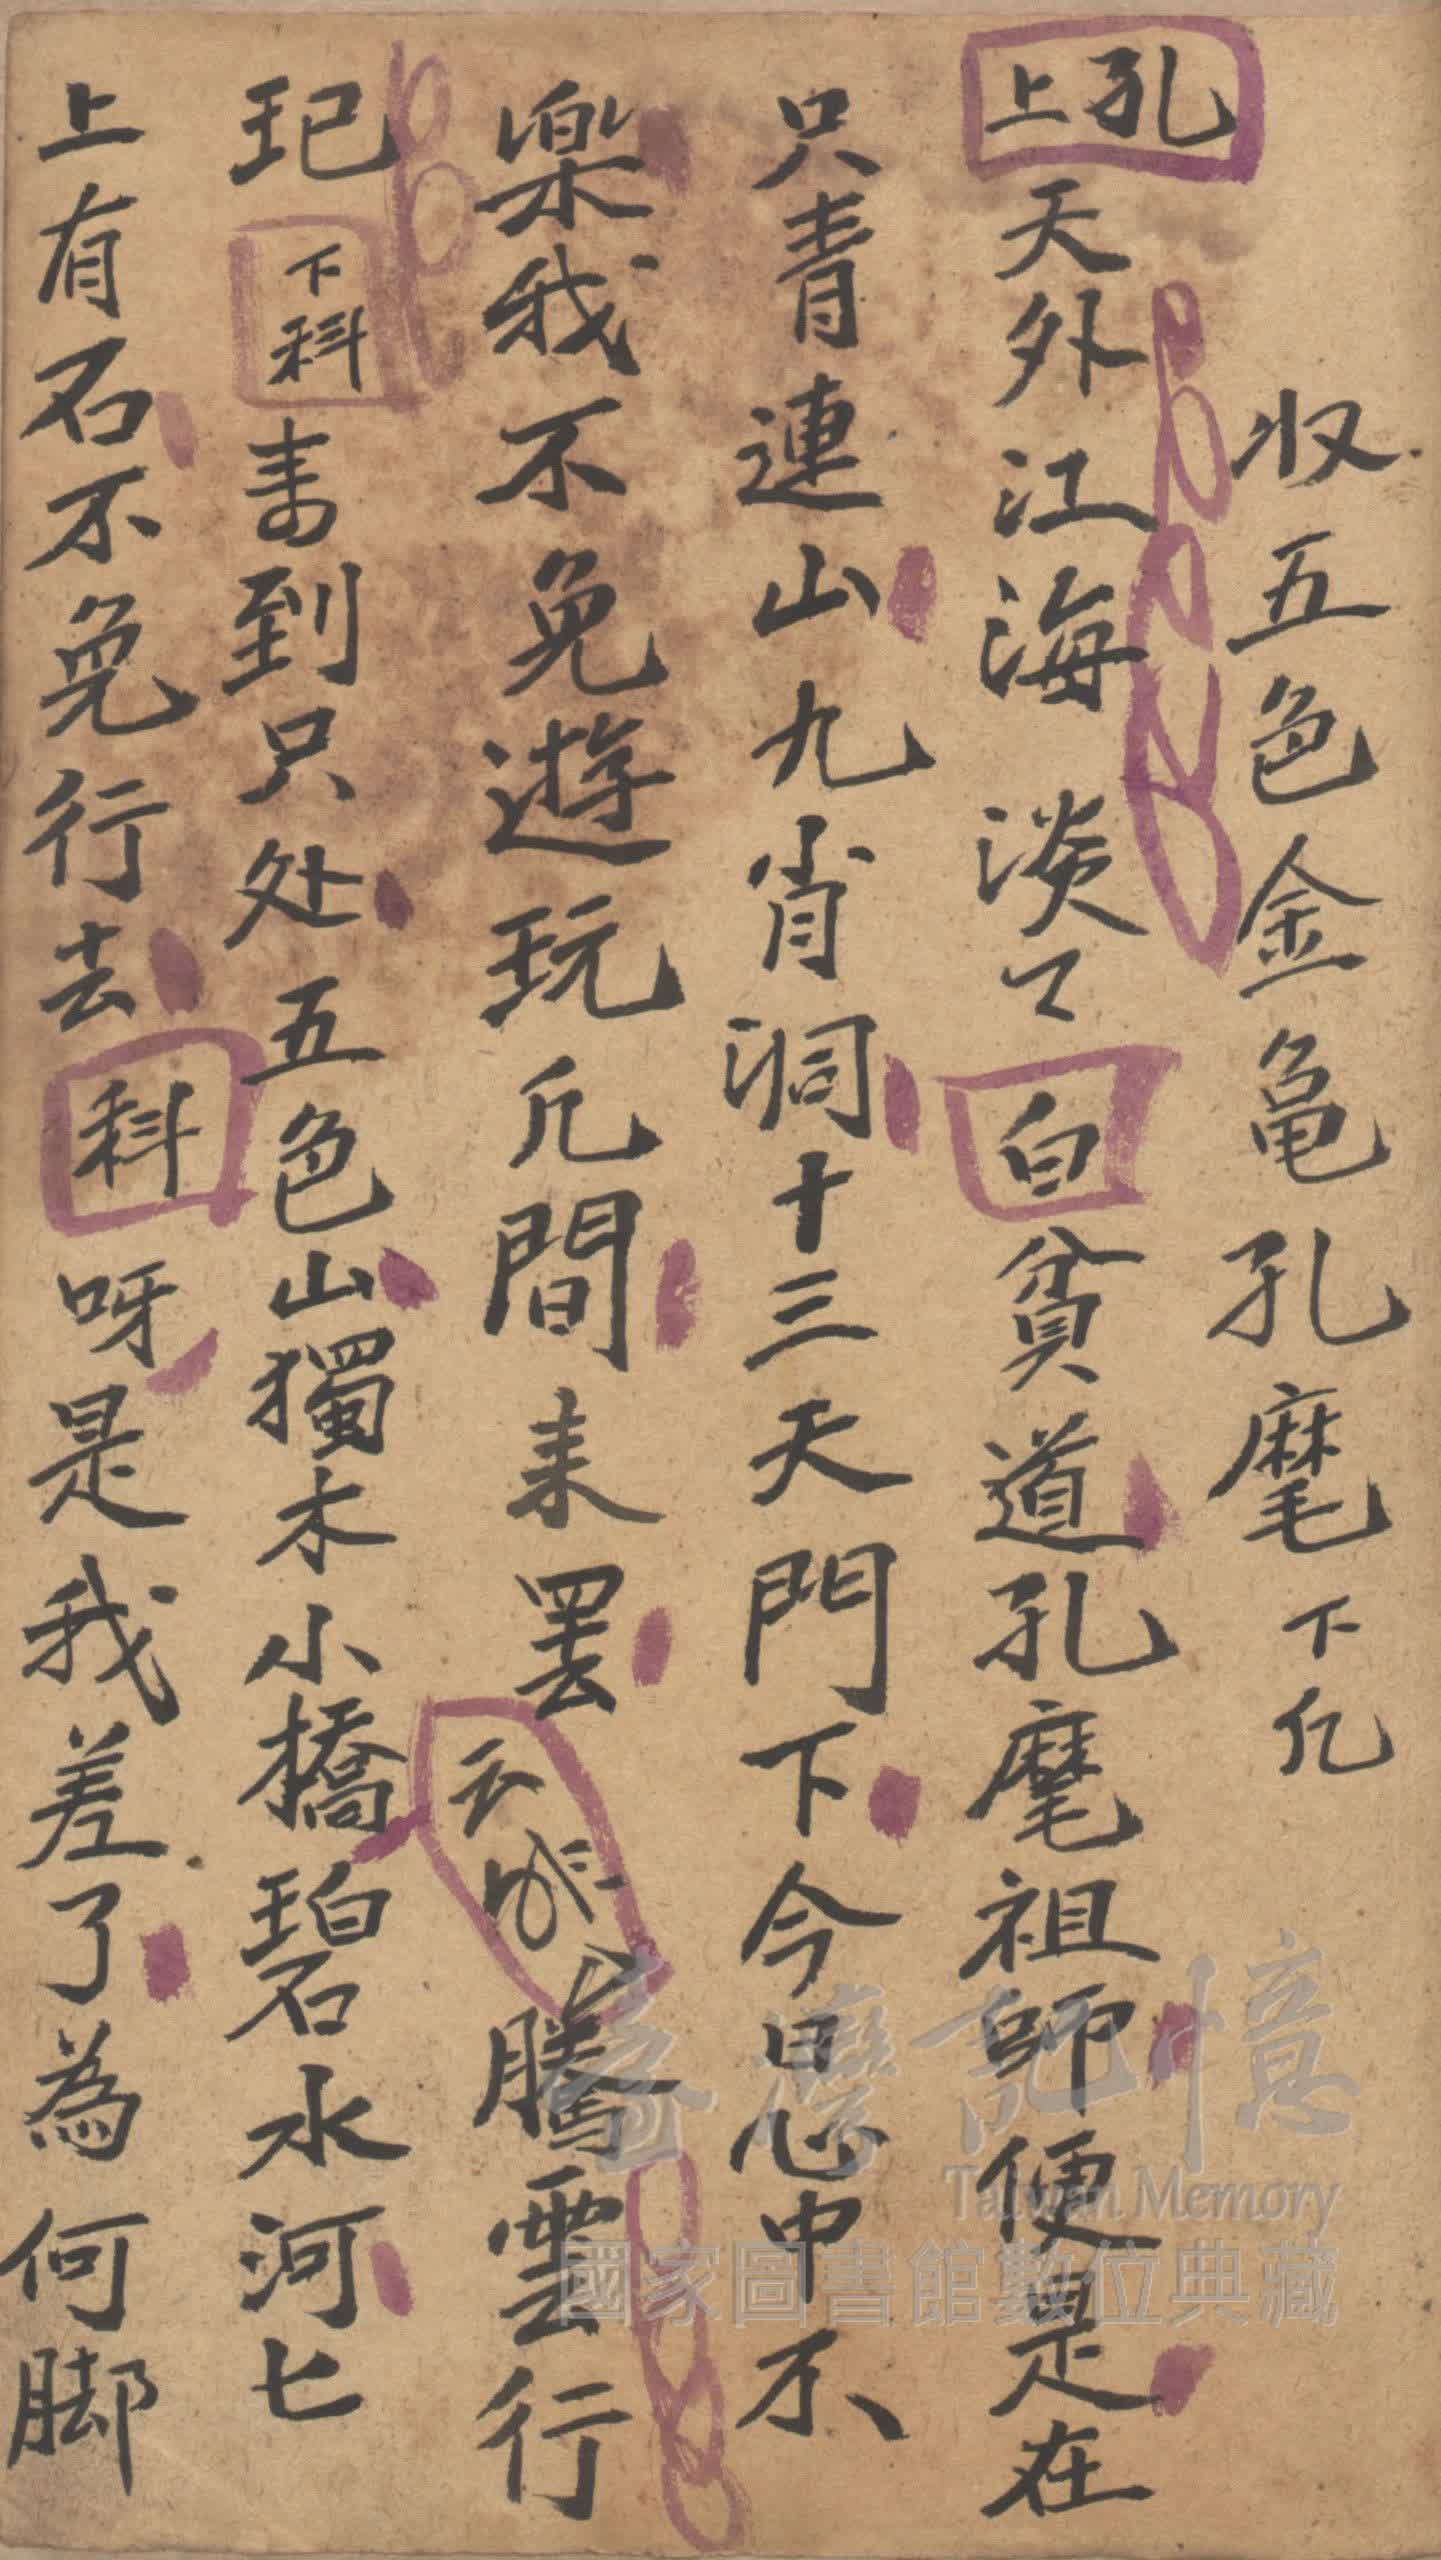 収五色金亀孔麾下凡
孔上天外江海淡々白貧道孔麾祖師便是在
只青連山九肖洞十三天門下今思中不
楽我不免遊玩凡間耒罢云騰雲行
玘下科耒到只处五色山獨木小橋碧水河七
上有石不免行去科呀是我差了為何脚
臺灣記憶
Taiwan Memory
國家圖書館數位典藏